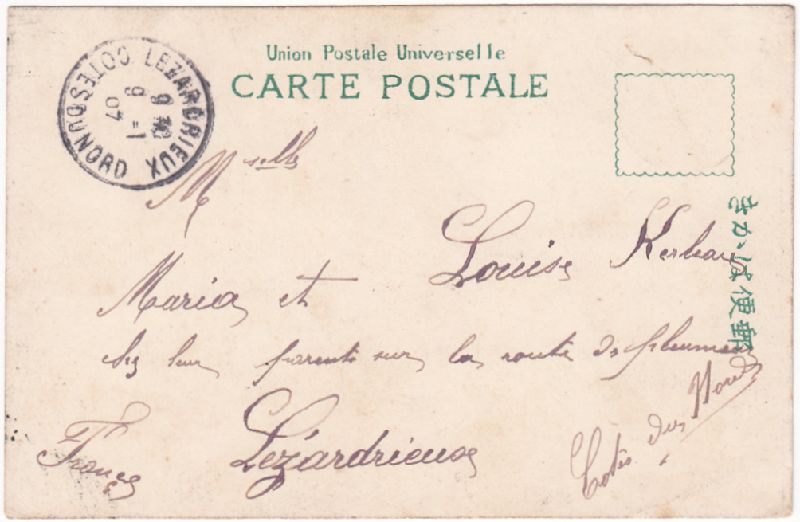 Union Postale Universelle
CARTE POSTALE
LEZARDRIEUX
COTES DU NORD
9 30
9 - 1
07
きかは便郵
Mselle
Maria et Louise
chez leur parents sur la route de pleumeur
Lézardrieux
Cotes du Nord
France